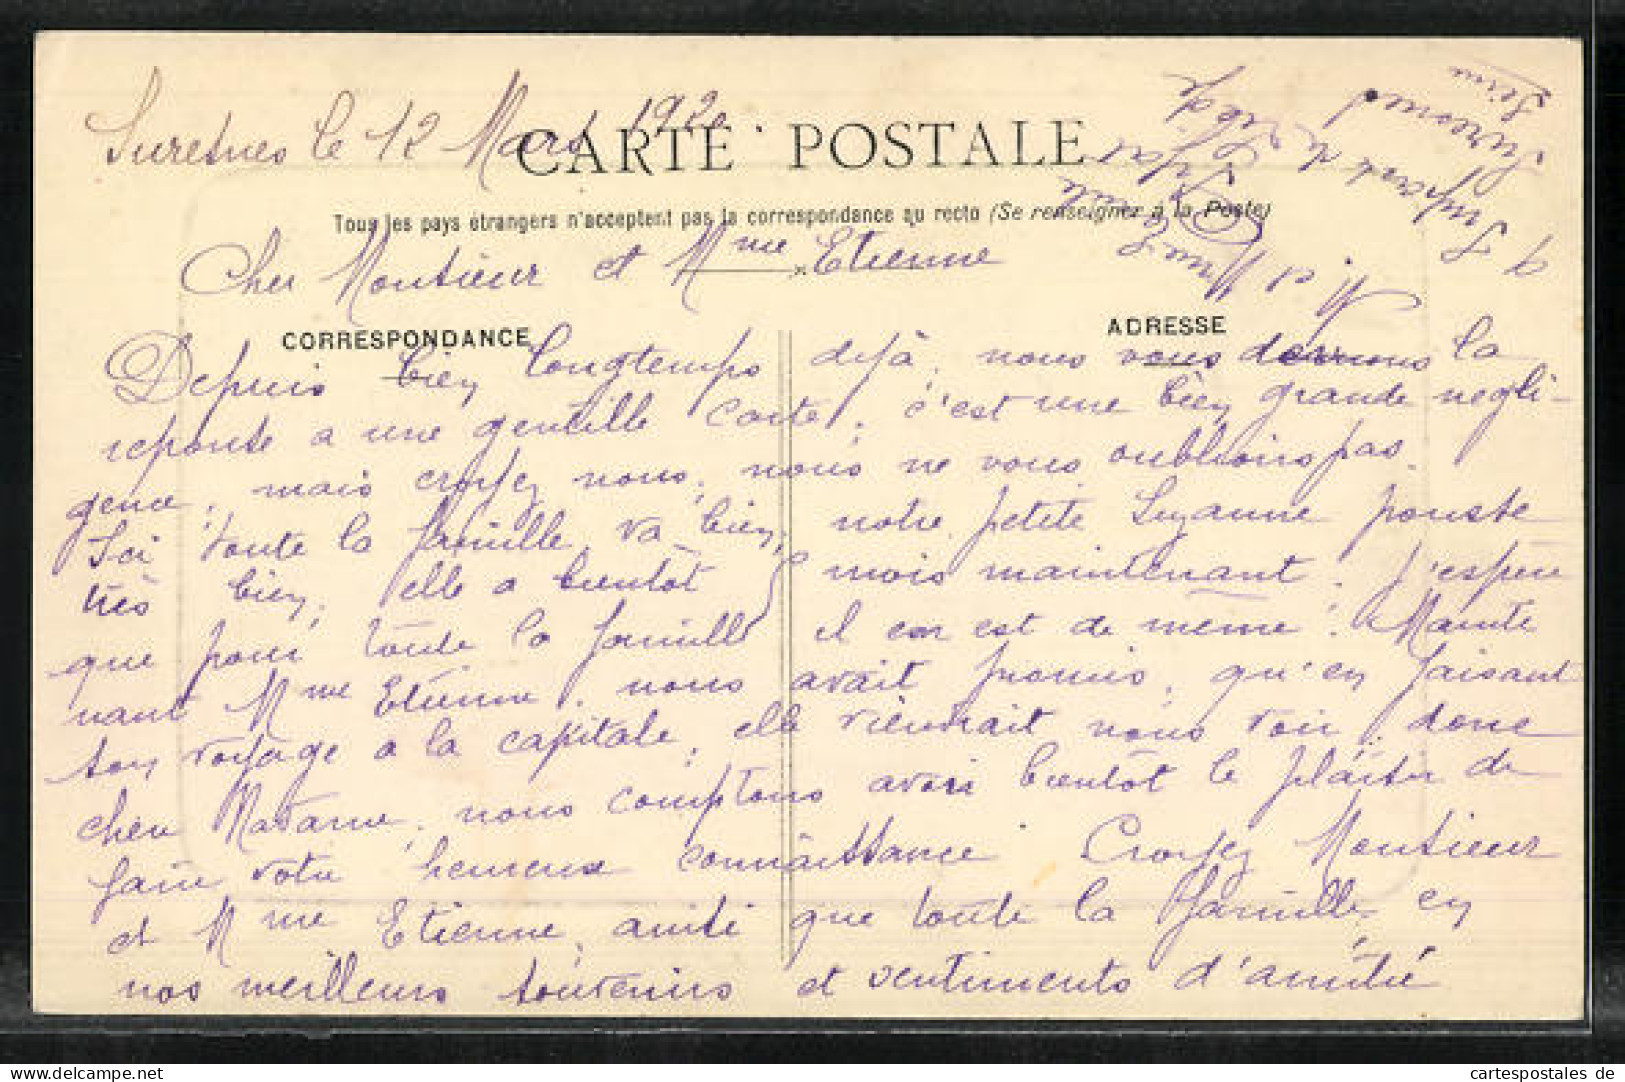 Suresnes le 12 Mars 1920
CARTE POSTALE
Tous les pays étrangers n'acceptent pas la correspondance au recto (Se renseigner à la Poste)
Cher Monsieur et Mme Etienne
CORRESPONDANCE
ADRESSE
Depuis bien longtemps dejà, nous vous devrions la
reponse a une gentille carte, c'est une bien grande negli-
gence, mais croyez nous, nous ne vous oublions pas.
Ici toute la famille va bien, notre petite Suzanne pousse
très bien, elle a bientôt mois maintenant. J'espère
que pour toute la famille il en est de même. Mainte
nant Mme Etienne, nous avait promis, qu'en faisant
son voyage a la capitale, elle viendrait nous voir, donc
chère Madame, nous comptons avoir bientôt le plaisir de
faire votre heureuse connaissance Croyez Monsieur
et Mme Etienne, ainsi que toute la famille, en
nos meilleurs souvenirs et sentiments d'amitié
M. et Mme
9
Suresnes
Seine
cartespostales de